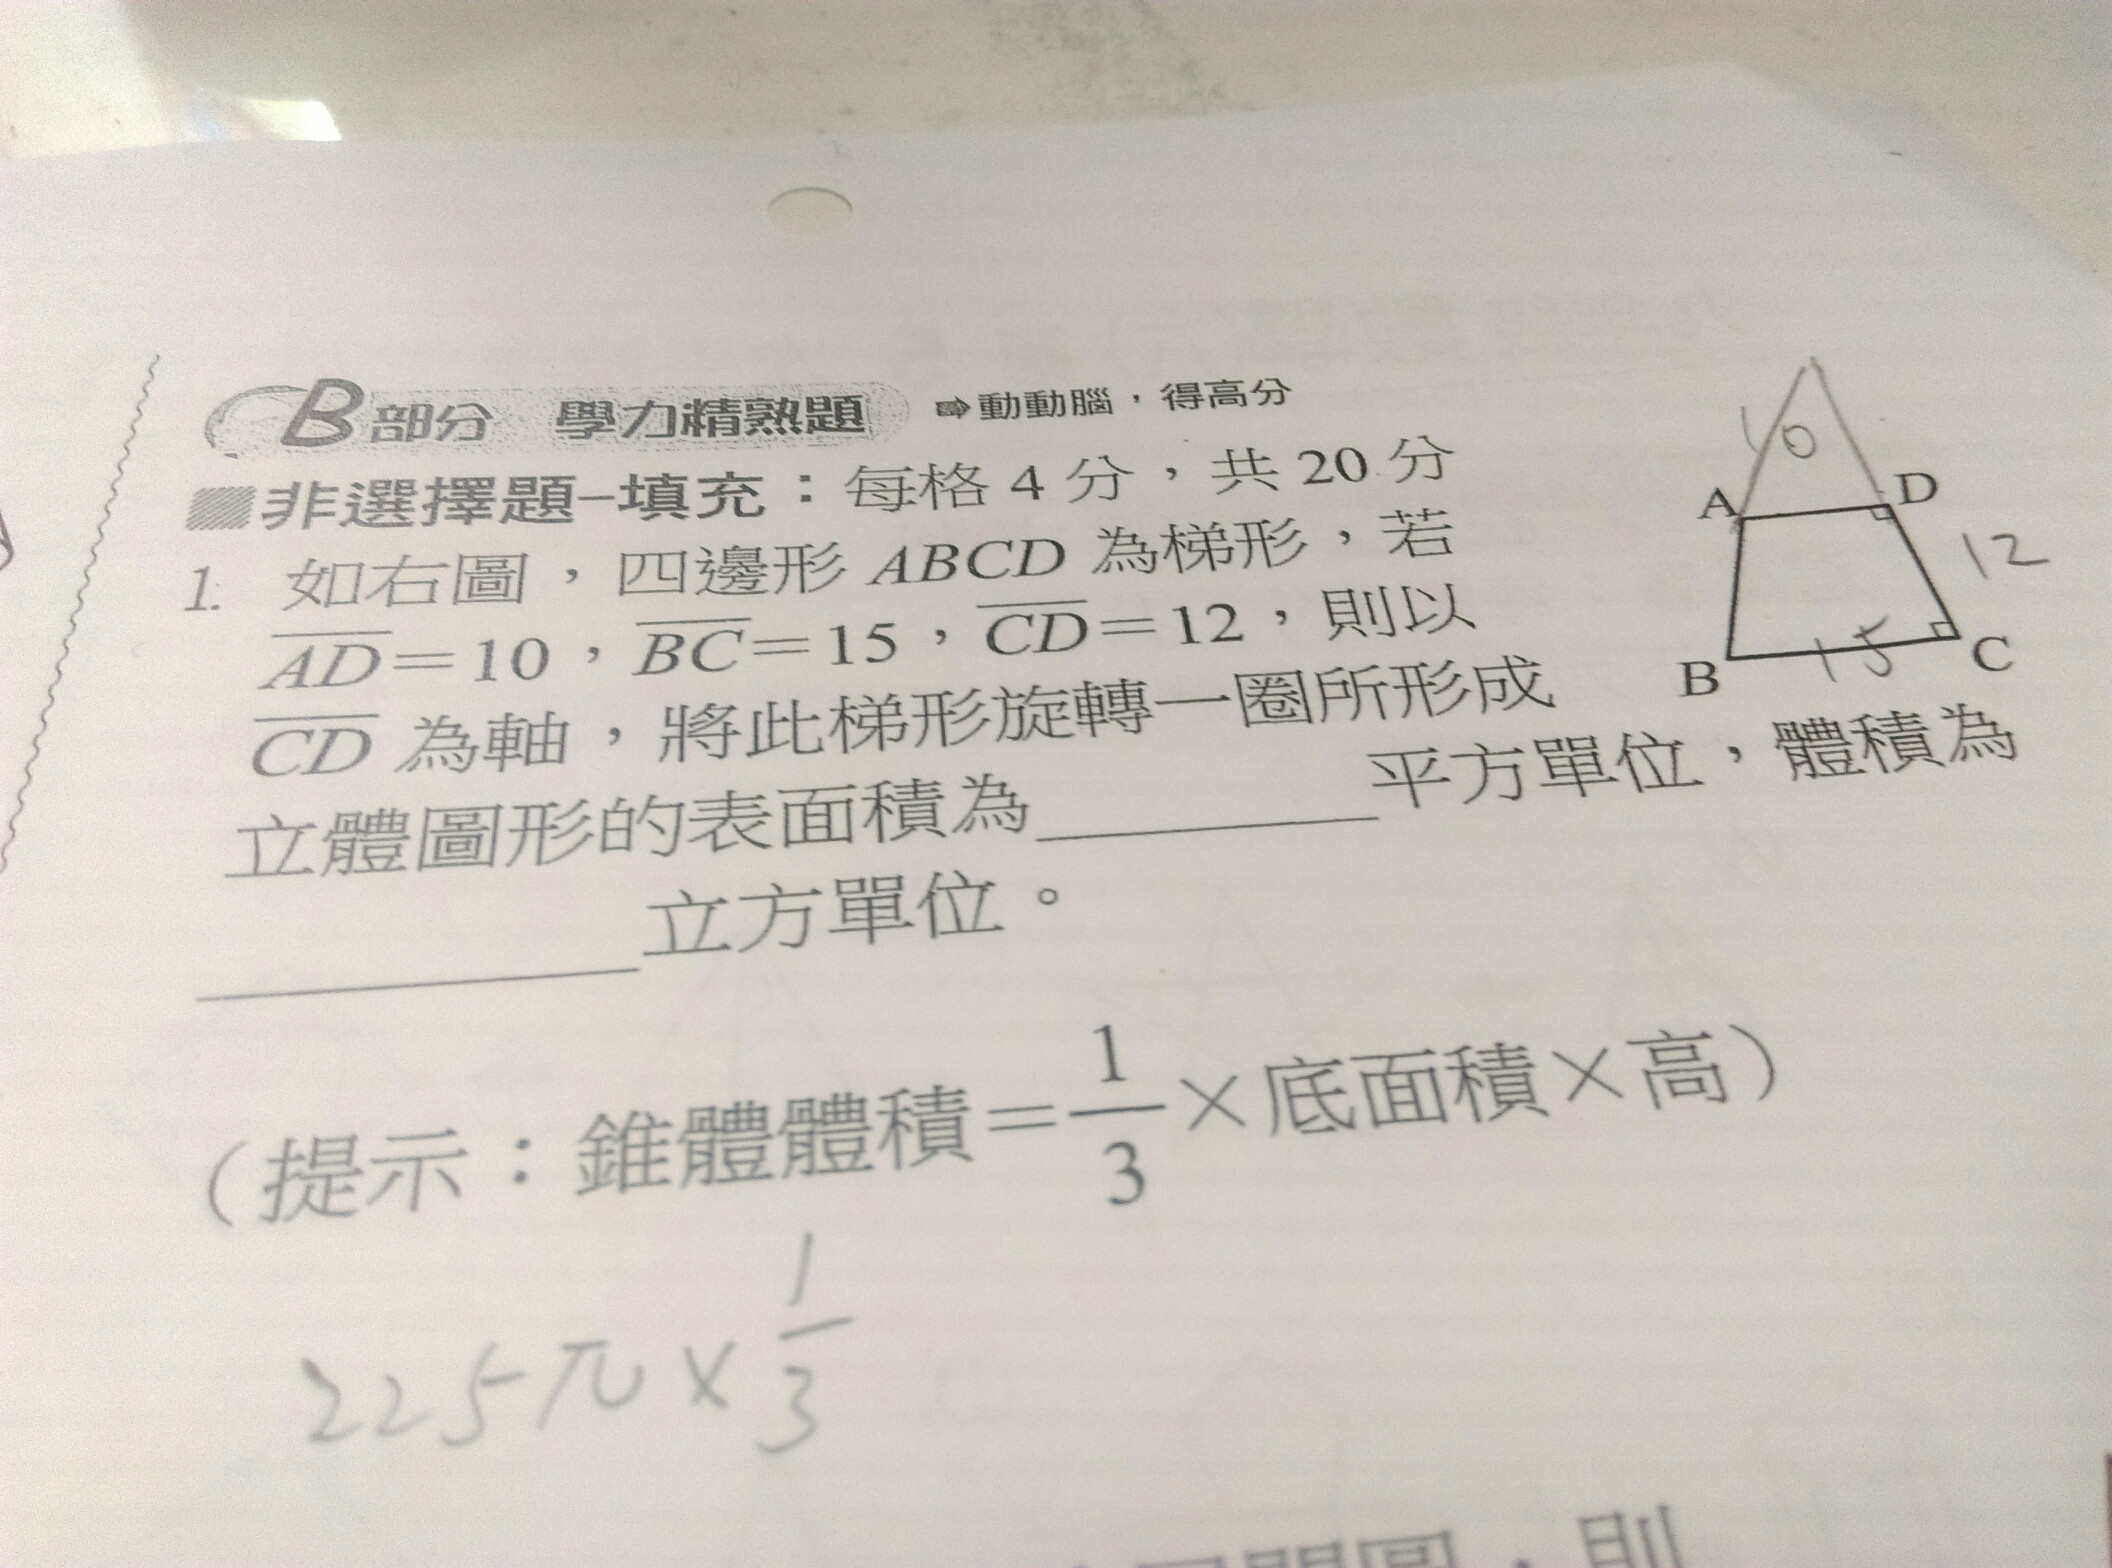 B部分 學力精熟題 ➡動動腦,得高分
非選擇題-填充:每格4分,共20分
1. 如右圖,四邊形ABCD為梯形,若
AD=10,BC=15,CD=12,則以
CD為軸,將此梯形旋轉一圈所形成
立體圖形的表面積為________平方單位,體積為
________立方單位。
(提示:錐體體積=1/3×底面積×高)
225π×1/3
10
A
D
12
15
B
C